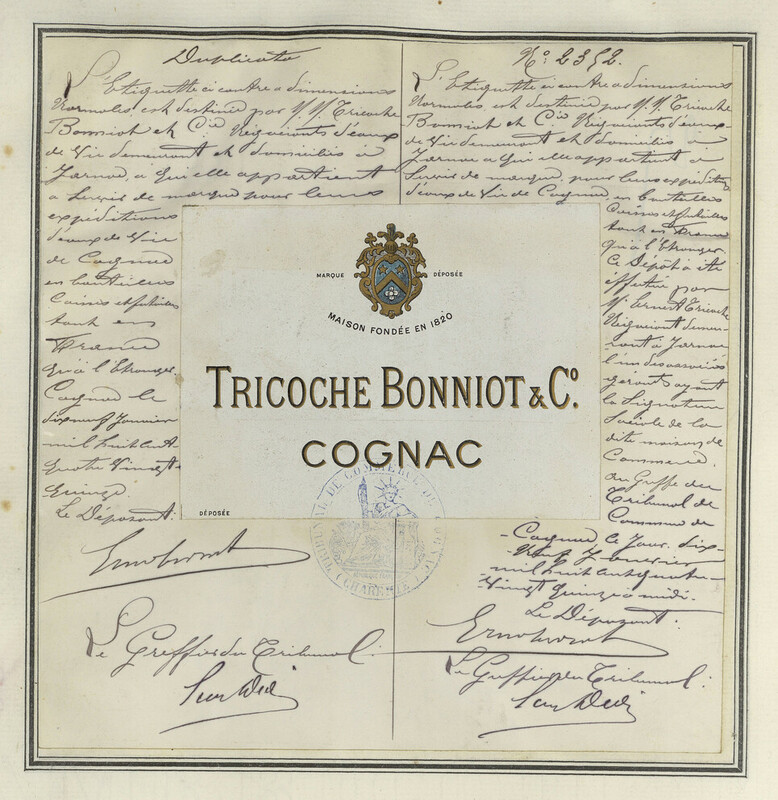 Duplicata
L'Etiquette ci contre a dimensions
Normales est destinée par M.M. Tricoche
Bonniot et Cie Négociants d'eaux
de Vie demeurant et domiciliés à
Jarnac, a qui elle appartient
a Servir de marque pour leurs
expéditions
d'eaux de Vie
de Cognac
en bouteilles
Caisses et futailles
tant en
France
qu'à l'Etranger
Cognac le
dix neuf Janvier
mil huit cent
quatre Vingt
quinze
Le Déposant:
Le Greffier du Tribunal:
No: 2352.
L'Etiquette ci contre a dimensions
Normales est destinée par M.M. Tricoche
Bonniot et Cie Négociants d'eaux
de Vie demeurant et domiciliés à
Jarnac a qui elle appartient à
Servir de marque, pour leurs expéditions
d'eaux de Vie de Cognac, en bouteilles
Caisses et futailles
tant en France
qu'à l'Etranger
Ce Dépôt a été
effectué par
Mr Ernest Tricoche
Négociant demeu-
rant à Jarnac
l'un des associés
gérants ayant
la Signature
Sociale de la
dite maison de
Commerce.
au Greffe du
Tribunal de
Commerce de
Cognac, le Jour dix-
neuf Janvier
mil huit cent quatre-
vingt quinze à midi.
Le Déposant:
Le Greffier du Tribunal:
MARQUE DÉPOSÉE
MAISON FONDÉE EN 1820
TRICOCHE BONNIOT & Co.
COGNAC
DÉPOSÉE
TRIBUNAL DE COMMERCE DE COGNAC
(CHARENTE)